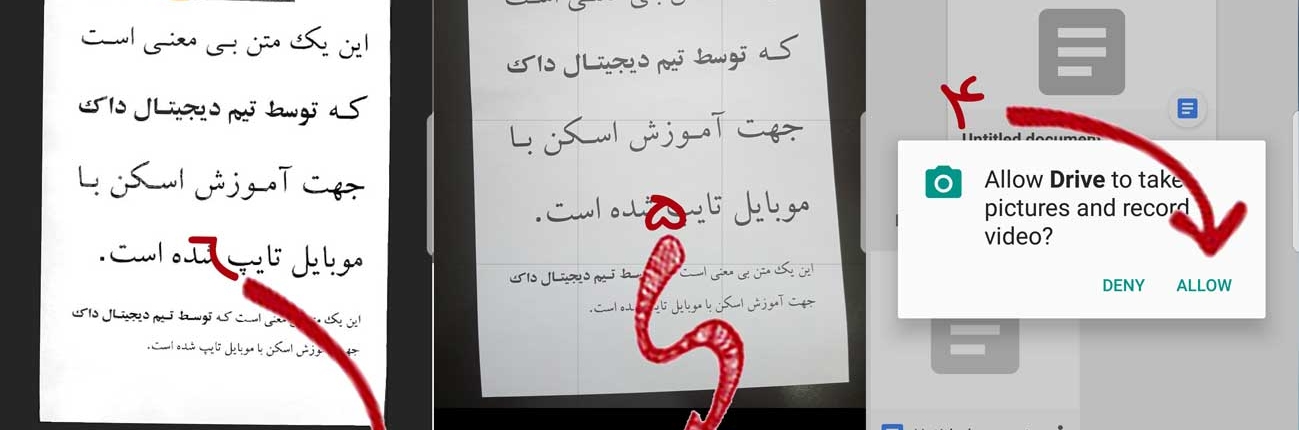 ۴
Untitled document
Allow Drive to take
pictures and record
video?
DENY ALLOW
که توسط تیم دیجیتال داک
جهت آموزش اسکن با
موبایل تایپ شده است.
۵
این یک متن بی معنی است توسط تیم دیجیتال داک
جهت آموزش اسکن با موبایل تایپ شده است.
این یک متن بی معنی است
که توسط تیم دیجیتال داک
جهت آموزش اسکن با
موبایل تایپ شده است.
۶
این یک متن بی معنی است که توسط تیم دیجیتال داک
جهت آموزش اسکن با موبایل تایپ شده است.